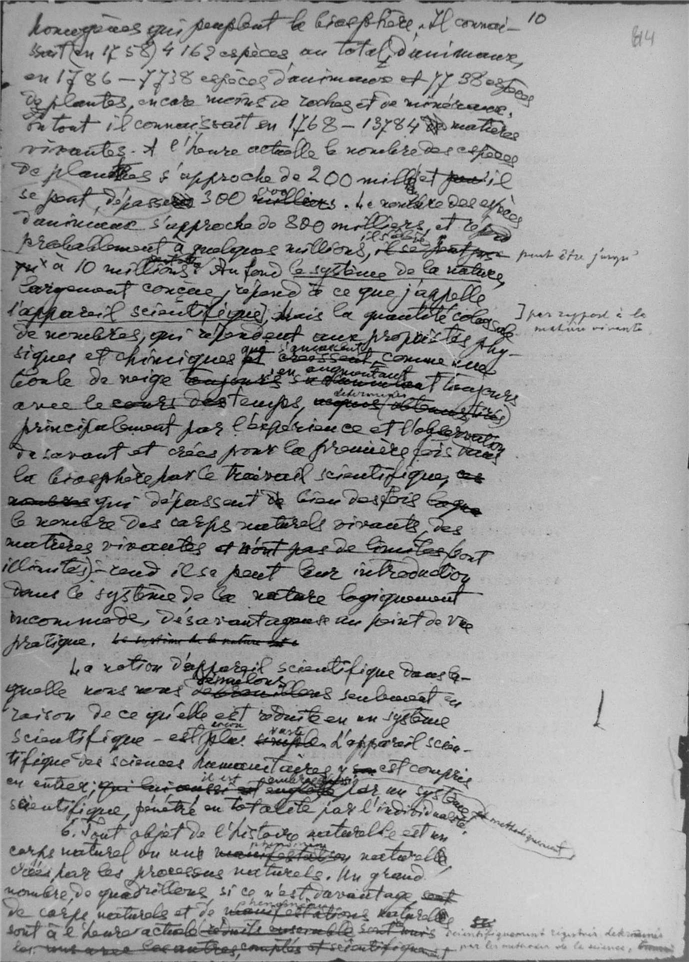 10
homogènes qui peuplent la biosphère. Il connais-
sait (en 1758) 4162 espèces au total, d'animaux,
en 1786 – 7738 espèces d'animaux et 7798 espèces
de plantes, encore moins de roches et de minéraux.
En tout il connaissait en 1768 – 13784 matières
vivantes. A l'heure actuelle le nombre des espèces
de plantes s'approche de 200 mill et il
se peut, dépasse 300. Le nombre des espèces
d'animaux s'approche de 800 milliers, et
probablement à quelques millions, peut être jusqu'
à 10 millions. Au fond le système de la nature,
largement conçue, répond à ce que j'appelle
l'appareil scientifique, mais la quantité colossale
] par rapport à la
matière vivante
de nombres, qui répondent aux propriétés phy-
siques et chimiques qui croissent comme une
boule de neige en augmentant toujours
avec le cours des temps,
principalement par l'expérience et l'observation
de savant et crées pour la première fois dans
la biosphère par le travail scientifique,
nombres qui dépassent de bien des fois
le nombre des corps naturels vivants, des
matières vivantes n'ont pas de limites (sont
illimités) – rend il se peut leur introduction
dans le système de la nature logiquement
incommode, désavantageuse au point de vue
pratique. Le système de la nature
La notion d'appareil scientifique dans la-
quelle nous nous seulement en
raison de ce qu'elle est réduite en un système
scientifique – est plus vaste. L'appareil scien-
tifique des sciences humanitaires y est compris
en entier, il est par un système
scientifique, pénétré en totalité par l'individualité.
méthodiquement
6. Tout objet de l'histoire naturelle est un
corps naturel ou un phénomène naturel,
crées par les processus naturels. Un grand
nombre de quadrillons si ce n'est davantage
de corps naturels et de phénomènes naturels
sont à l'heure actuelle scientifiquement
par les méthodes de la science,